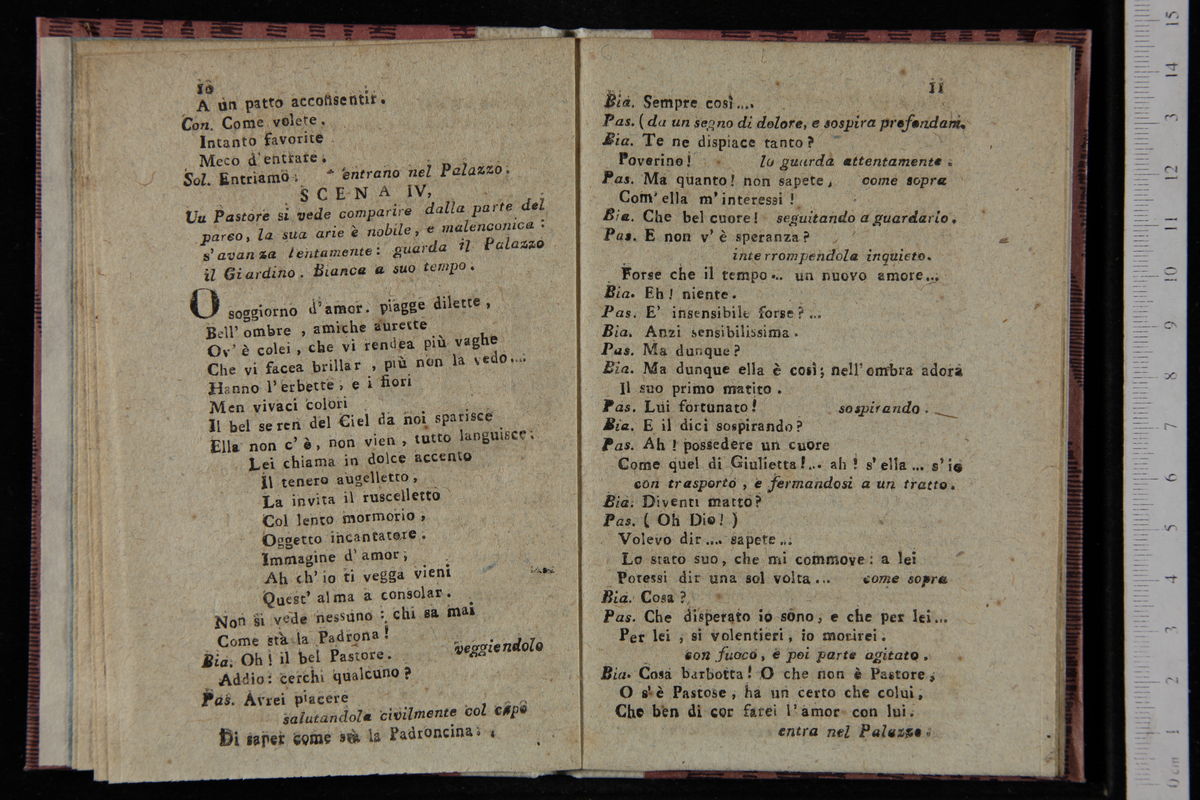 10
A un patto acconsentir.
Con. Come volete.
Intanto favorite
Meco d'entrare.
Sol. Entriamo: entrano nel Palazzo.
SCENA IV,
Un Pastore si vede comparire dalla parte del
parco, la sua arie è nobile, e malenconica:
s'avanza lentamente: guarda il Palazzo
il Giardino. Bianca a suo tempo.
O soggiorno d'amor. piagge dilette,
Bell' ombre, amiche aurette
Ov' è colei, che vi rendea più vaghe
Che vi facea brillar, più non la vedo....
Hanno l'erbette, e i fiori
Men vivaci colori
Il bel seren del Ciel da noi sparisce
Ella non c'è, non vien, tutto languisce:
Lei chiama in dolce accento
Il tenero augelletto,
La invita il ruscelletto
Col lento mormorio,
Oggetto incantatore.
Immagine d'amor,
Ah ch'io ti vegga vieni
Quest' alma a consolar.
Non si vede nessuno: chi sa mai
Come stà la Padrona!
Bia. Oh! il bel Pastore. veggiendolo
Addio: cerchi qualcuno?
Pas. Avrei piacere
salutandola civilmente col capo
Di saper come sta la Padroncina.
11
Bia. Sempre così....
Pas. (da un segno di dolore, e sospira profondam.
Bia. Te ne dispiace tanto?
Poverino! lo guarda attentamente.
Pas. Ma quanto! non sapete, come sopra
Com' ella m'interessi!
Bia. Che bel cuore! seguitando a guardarlo.
Pas. E non v'è speranza?
interrompendola inquieto.
Forse che il tempo... un nuovo amore...
Bia. Eh! niente.
Pas. E' insensibile forse?...
Bia. Anzi sensibilissima.
Pas. Ma dunque?
Bia. Ma dunque ella è così; nell'ombra adora
Il suo primo matito.
Pas. Lui fortunato! sospirando.
Bia. E il dici sospirando?
Pas. Ah! possedere un cuore
Come quel di Giulietta!... ah! s'ella... s'io
con trasporto, e fermandosi a un tratto.
Bia. Diventi matto?
Pas. (Oh Dio!)
Volevo dir.... sapete...
Lo stato suo, che mi commove: a lei
Potessi dir una sol volta... come sopra
Bia. Cosa?
Pas. Che disperato io sono, e che per lei...
Per lei, si volentieri, io morirei.
con fuoco, e poi parte agitato.
Bia. Cosa barbotta! O che non è Pastore,
O s'è Pastose, ha un certo che colui,
Che ben di cor farei l'amor con lui.
entra nel Palazzo.
0 cm 1 2 3 4 5 6 7 8 9 10 11 12 13 14 15